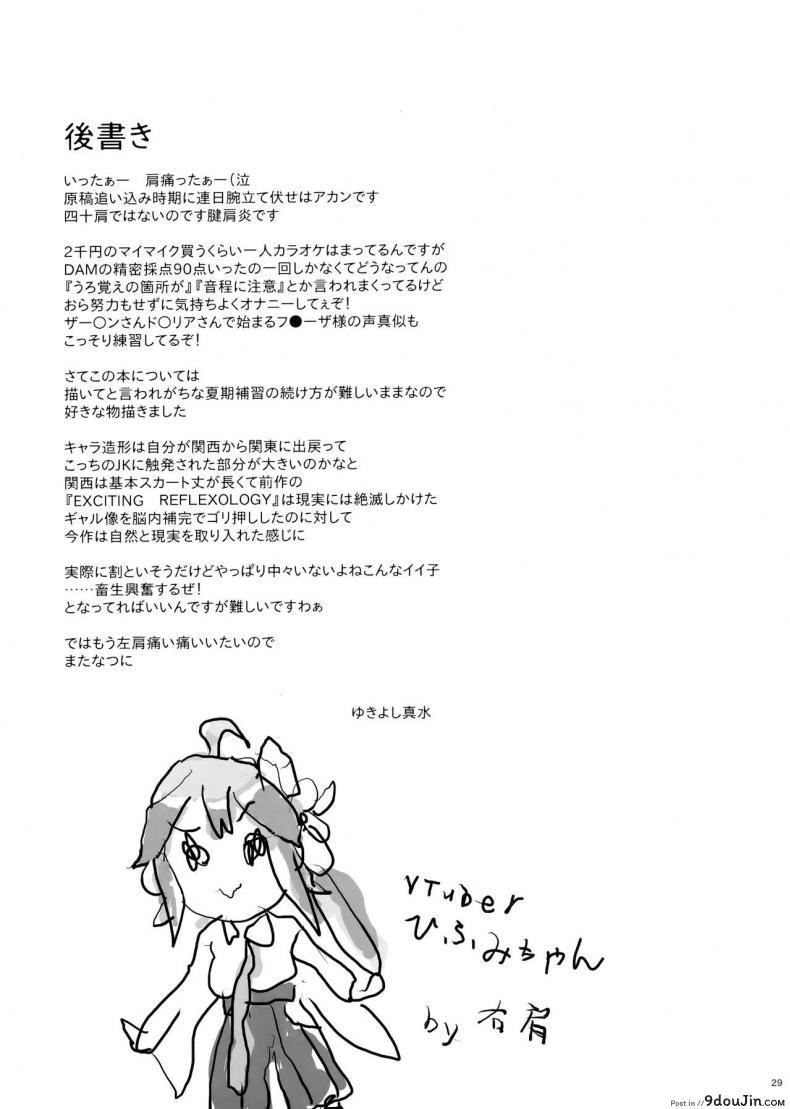 後書き
いったぁー　肩痛ったぁー（泣
原稿追い込み時期に連日腕立て伏せはアカンです
四十肩ではないのです腱肩炎です
2千円のマイマイク買うくらい一人カラオケはまってるんですが
DAMの精密採点90点いったの一回しかなくてどうなってんの
『うろ覚えの箇所が』『音程に注意』とか言われまくってるけど
おら努力もせずに気持ちよくオナニーしてぇぞ！
ザー〇ンさんド〇リアさんで始まるフ●ーザ様の声真似も
こっそり練習してるぞ！
さてこの本については
描いてと言われがちな夏期補習の続け方が難しいままなので
好きな物描きました
キャラ造形は自分が関西から関東に出戻って
こっちのJKに触発された部分が大きいのかなと
関西は基本スカート丈が長くて前作の
『EXCITING　REFLEXOLOGY』は現実には絶滅しかけた
ギャル像を脳内補完でゴリ押ししたのに対して
今作は自然と現実を取り入れた感じに
実際に割といそうだけどやっぱり中々いないよねこんなイイ子
……畜生興奮するぜ！
となってればいいんですが難しいですわぁ
ではもう左肩痛い痛いいたいので
またなつに
ゆきよし真水
VTuber
ひふみちゃん
by 右肩
29
Post in // 9douJin.com